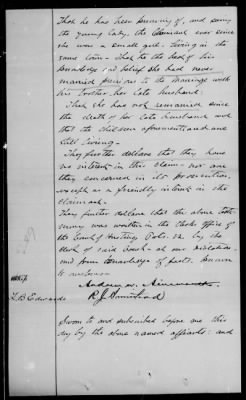 That he has been knowing of, and seeing
the young lady, the claimant ever since
she was a small girl. living in the
same town - That to the best of his
knowledge and belief she had never
married previous to the marriage with
his brother, her late husband.
That she has not remarried since
the death of her late husband and
that the children aforementioned are
still living.
They further declare that they have
no interest in this claim. nor are
they concerned in its prosecution,
except as a friendly interest in the
claimant.
They further declare that the above testi-
mony was written in the Clerks office
of the Court of Hustings Ports. Va by the
clerk of said Court. at our dictation
and from knowledge of facts. known
to ourselves
Andrew
L. B. Edwards
R. J.
Sworn to and subscribed before me this
day by the above named affiants: and